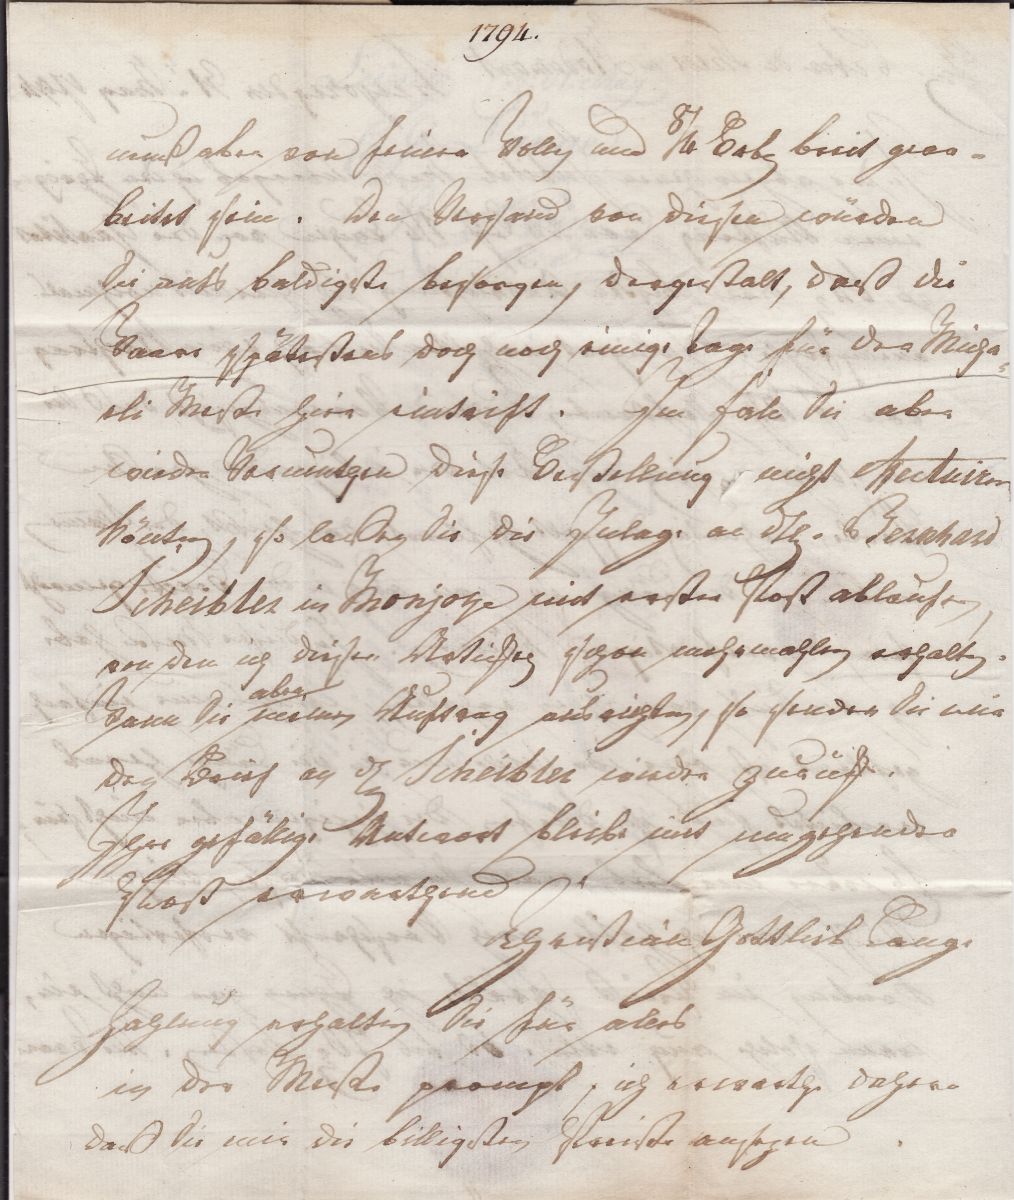 1794.
muß aber von feiner Wolle und 8/4 Brab breit gear-
beitet sein. Den Versand von diesen würden
Sie aufs baldigste besorgen, dergestalt, daß die
Waare spätestens doch noch einige Tage für der Micha-
eli Messe hier eintrift. Im fale Sie aber
wieder Vermuthen diese Bestellung nicht
könten, so laßen Sie die Inlage an HE. Bernhard
Scheibler in Monjoye mit erster Post ablaufen,
von dem ich diesen Artickel schon mehrmahlen erhalten.
Wenn Sie aber meinen Auftrag ausrichten, so senden Sie mir
den Brief an H Scheibler wieder zurück.
Ihre gefällige Antwort bleibe mit umgehender
Post erwarthend
Christian Gottlieb Lange
Zahlung erhalten Sie für alles
in der Messe prompt, ich erwarthe dahero
daß Sie mir die billigsten Preise ansezen.